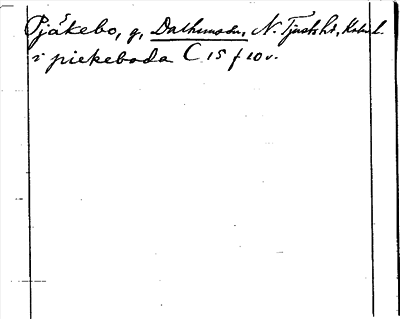 Pjäkebo, g, Dalhems sn, N. Tjusts hd, Kalm. l.
i piekeboda C 15 f 10 v.